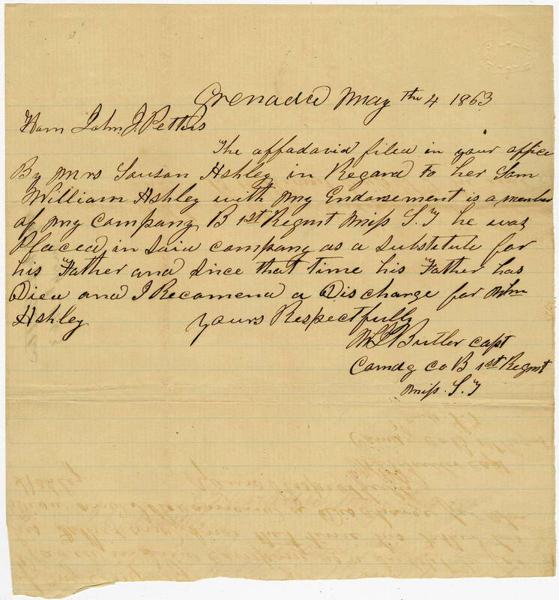 Grenada May th 4 1863
Hon John J. Pettus
The affadavid filed in your office
By Mrs Souson Ashley in Regard to her Son
William Ashley with my Endorsement is a member
of my company B 1st Regmt Miss S. T he was
Placed in Said company as a substitute for
his Father and Since that time his Father has
Died and I Recomend a Discharge for Wm
Ashley yours Respectfully
Butler capt
Comdg Co B 1st Regmt
Miss. S. T